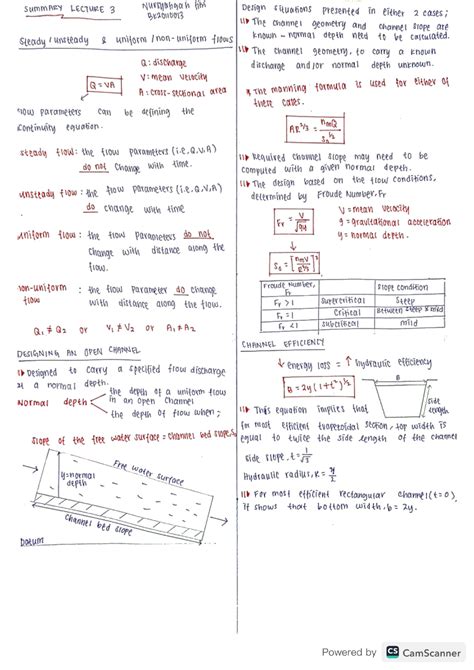 SUMMARY LECTURE 3
steady / unsteady & uniform / non-uniform flows
Q = VA
Q : discharge
V = mean velocity
A : cross-sectional area
flow parameters can be defining the
continuity equation.
steady flow : the flow parameters (i.e. Q, V, A)
do not change with time.
unsteady flow : the flow parameters (i.e. Q, V, A)
do change with time
uniform flow : the flow parameters do not
change with distance along the
flow.
non-uniform : the flow parameter do change
flow with distance along the flow.
Q₁ ≠ Q₂ or V₁ ≠ V₂ or A₁ ≠ A₂
DESIGNING AN OPEN CHANNEL
Designed to carry a specified flow discharge
at a normal depth.
Normal depth
the depth of a uniform flow
in an open channel
the depth of flow when;
slope of the free water surface = channel bed slope, S₀
Free water surface
y = normal
depth
channel bed slope
Datum
Design situations presented in either 2 cases;
The channel geometry and channel slope are
known - normal depth need to be calculated.
The channel geometry, to carry a known
discharge and/or normal depth unknown.
* The manning formula is used for either of
these cases.
AR^2/3 = nmQ / S₀^1/2
Required channel slope may need to be
computed with a given normal depth.
The design based on the flow conditions,
determined by Froude Number, Fr
Fr = V / √gy
V = mean velocity
g = gravitational acceleration
y = normal depth.
S₀ = [nmV / R^2/3]²
Froude Number, Fr
slope condition
Fr > 1 Supercritical Steep
Fr = 1 Critical Between steep & mild
Fr < 1 subcritical mild
CHANNEL EFFICIENCY
↓ energy loss = ↑ hydraulic efficiency
B = 2y (1+t²)^1/2
B
side
length
This equation implies that for
most efficient trapezoidal section, top width is
equal to twice the side length of the channel
side slope, t = 1/√3
Hydraulic radius, R = y/2
For most efficient rectangular channel (t = 0),
it shows that bottom width, b = 2y.
Powered by CS CamScanner